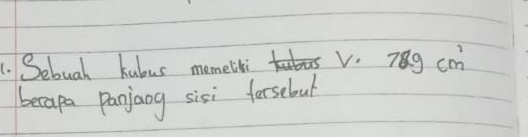 1. Sebuah kubus memeliki kubus V. 789 cm²
berapa panjang sisi tersebut